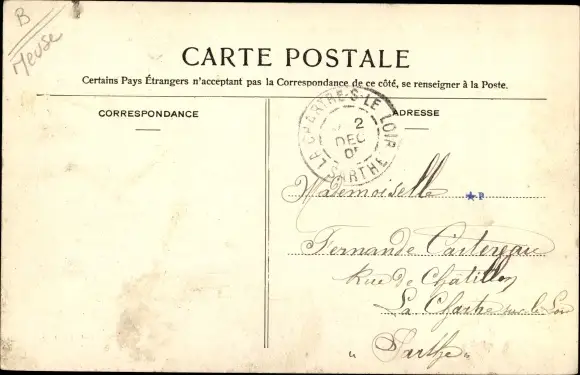 B
Meuse
CARTE POSTALE
Certains Pays Étrangers n'acceptant pas la Correspondance de ce côté, se renseigner à la Poste.
CORRESPONDANCE
ADRESSE
LA CHARTRE-S-LE LOIR
2
DEC
05
SARTHE
Mademoiselle
★P
Fernande Castereau
Rue de Châtillon
La Chartre sur le Loir
" Sarthe "